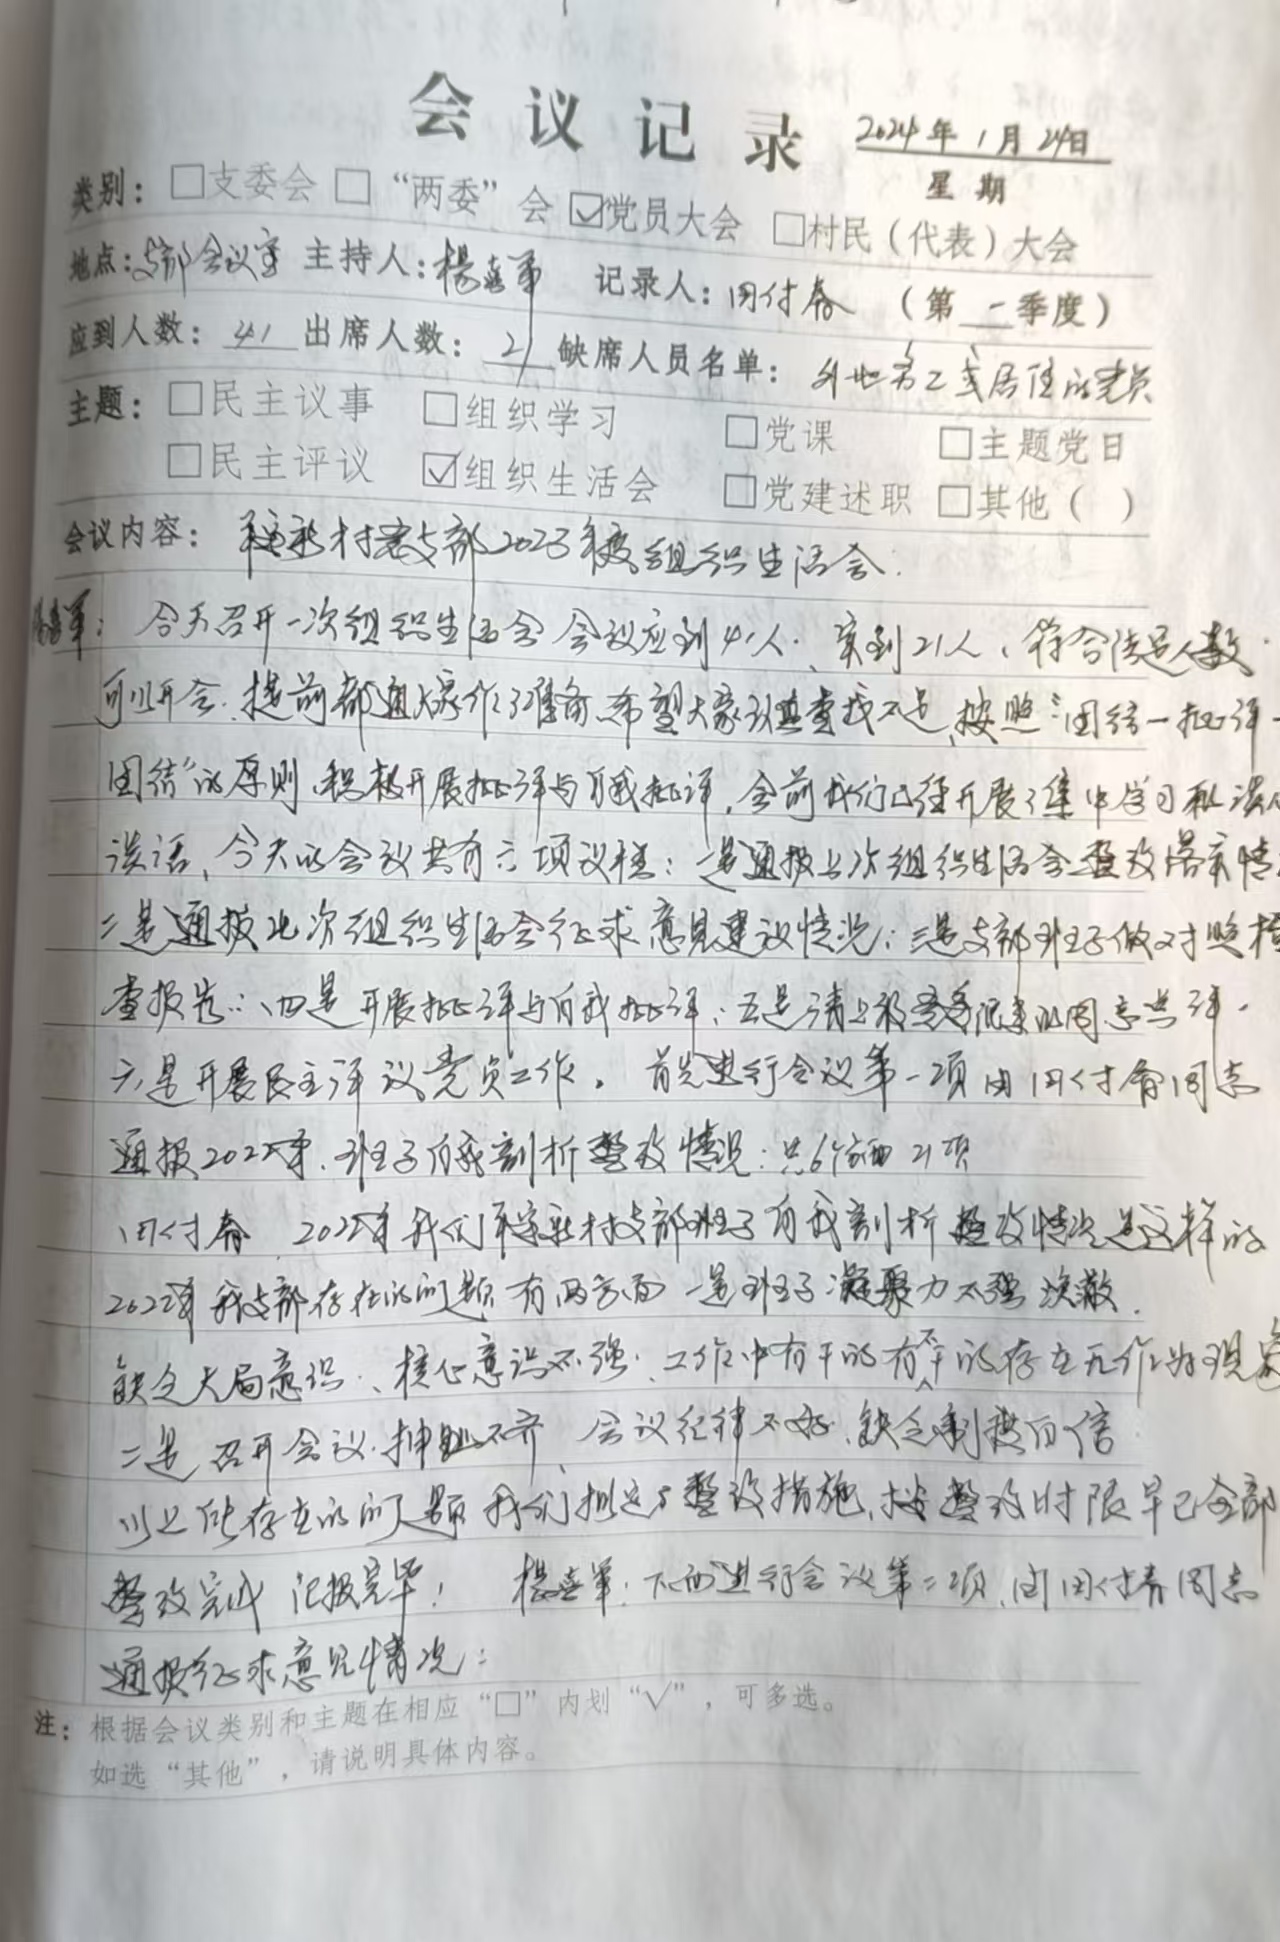 会议记录 2024年1月24日
星期
类别：□支委会 □“两委”会 ☑党员大会 □村民（代表）大会
地点：支部会议室 主持人：杨喜军 记录人：田付春 （第一季度）
应到人数：41 出席人数：21 缺席人员名单：外地务工或居住的党员
主题：□民主议事 □组织学习 □党课 □主题党日
□民主评议 ☑组织生活会 □党建述职 □其他（ ）
会议内容：村党支部2023年度组织生活会.
杨喜军：今天召开一次组织生活会 会议应到41人、实到21人、符合法定人数.
可以开会.提前都通大家作了准备、希望大家认真查找不足、按照“团结一批评一
团结”的原则、积极开展批评与自我批评，会前我们已经开展了集中学习和谈心
谈话，今天的会议共有六项议程：一是通报上次组织生活会整改落实情
二是通报此次组织生活会征求意见建议情况；三是支部班子做对照检
查报告；四是开展批评与自我批评；五是请上级党委派来的同志点评.
六是开展民主评议党员工作。首先进行会议第一项由田付春同志
通报2022年、班子自我剖析整改情况：共6个方面21项
田付春 2022年我们村支部班子自我剖析整改情况是这样的
2022年我支部存在的问题有两方面 一是班子凝聚力不强 涣散.
缺乏大局意识、核心意识不强、工作中有干的有不干的存在无作为现象
二是召开会议、不齐、会议纪律不好.缺乏自信
以上所存在的问题我们拟定了整改措施、按整改时限早已全部
整改完成 汇报完毕！ 杨喜军：下面进行会议第二项、由田付春同志
通报征求意见情况：
注：根据会议类别和主题在相应“□”内划“√”，可多选。
如选“其他”，请说明具体内容。